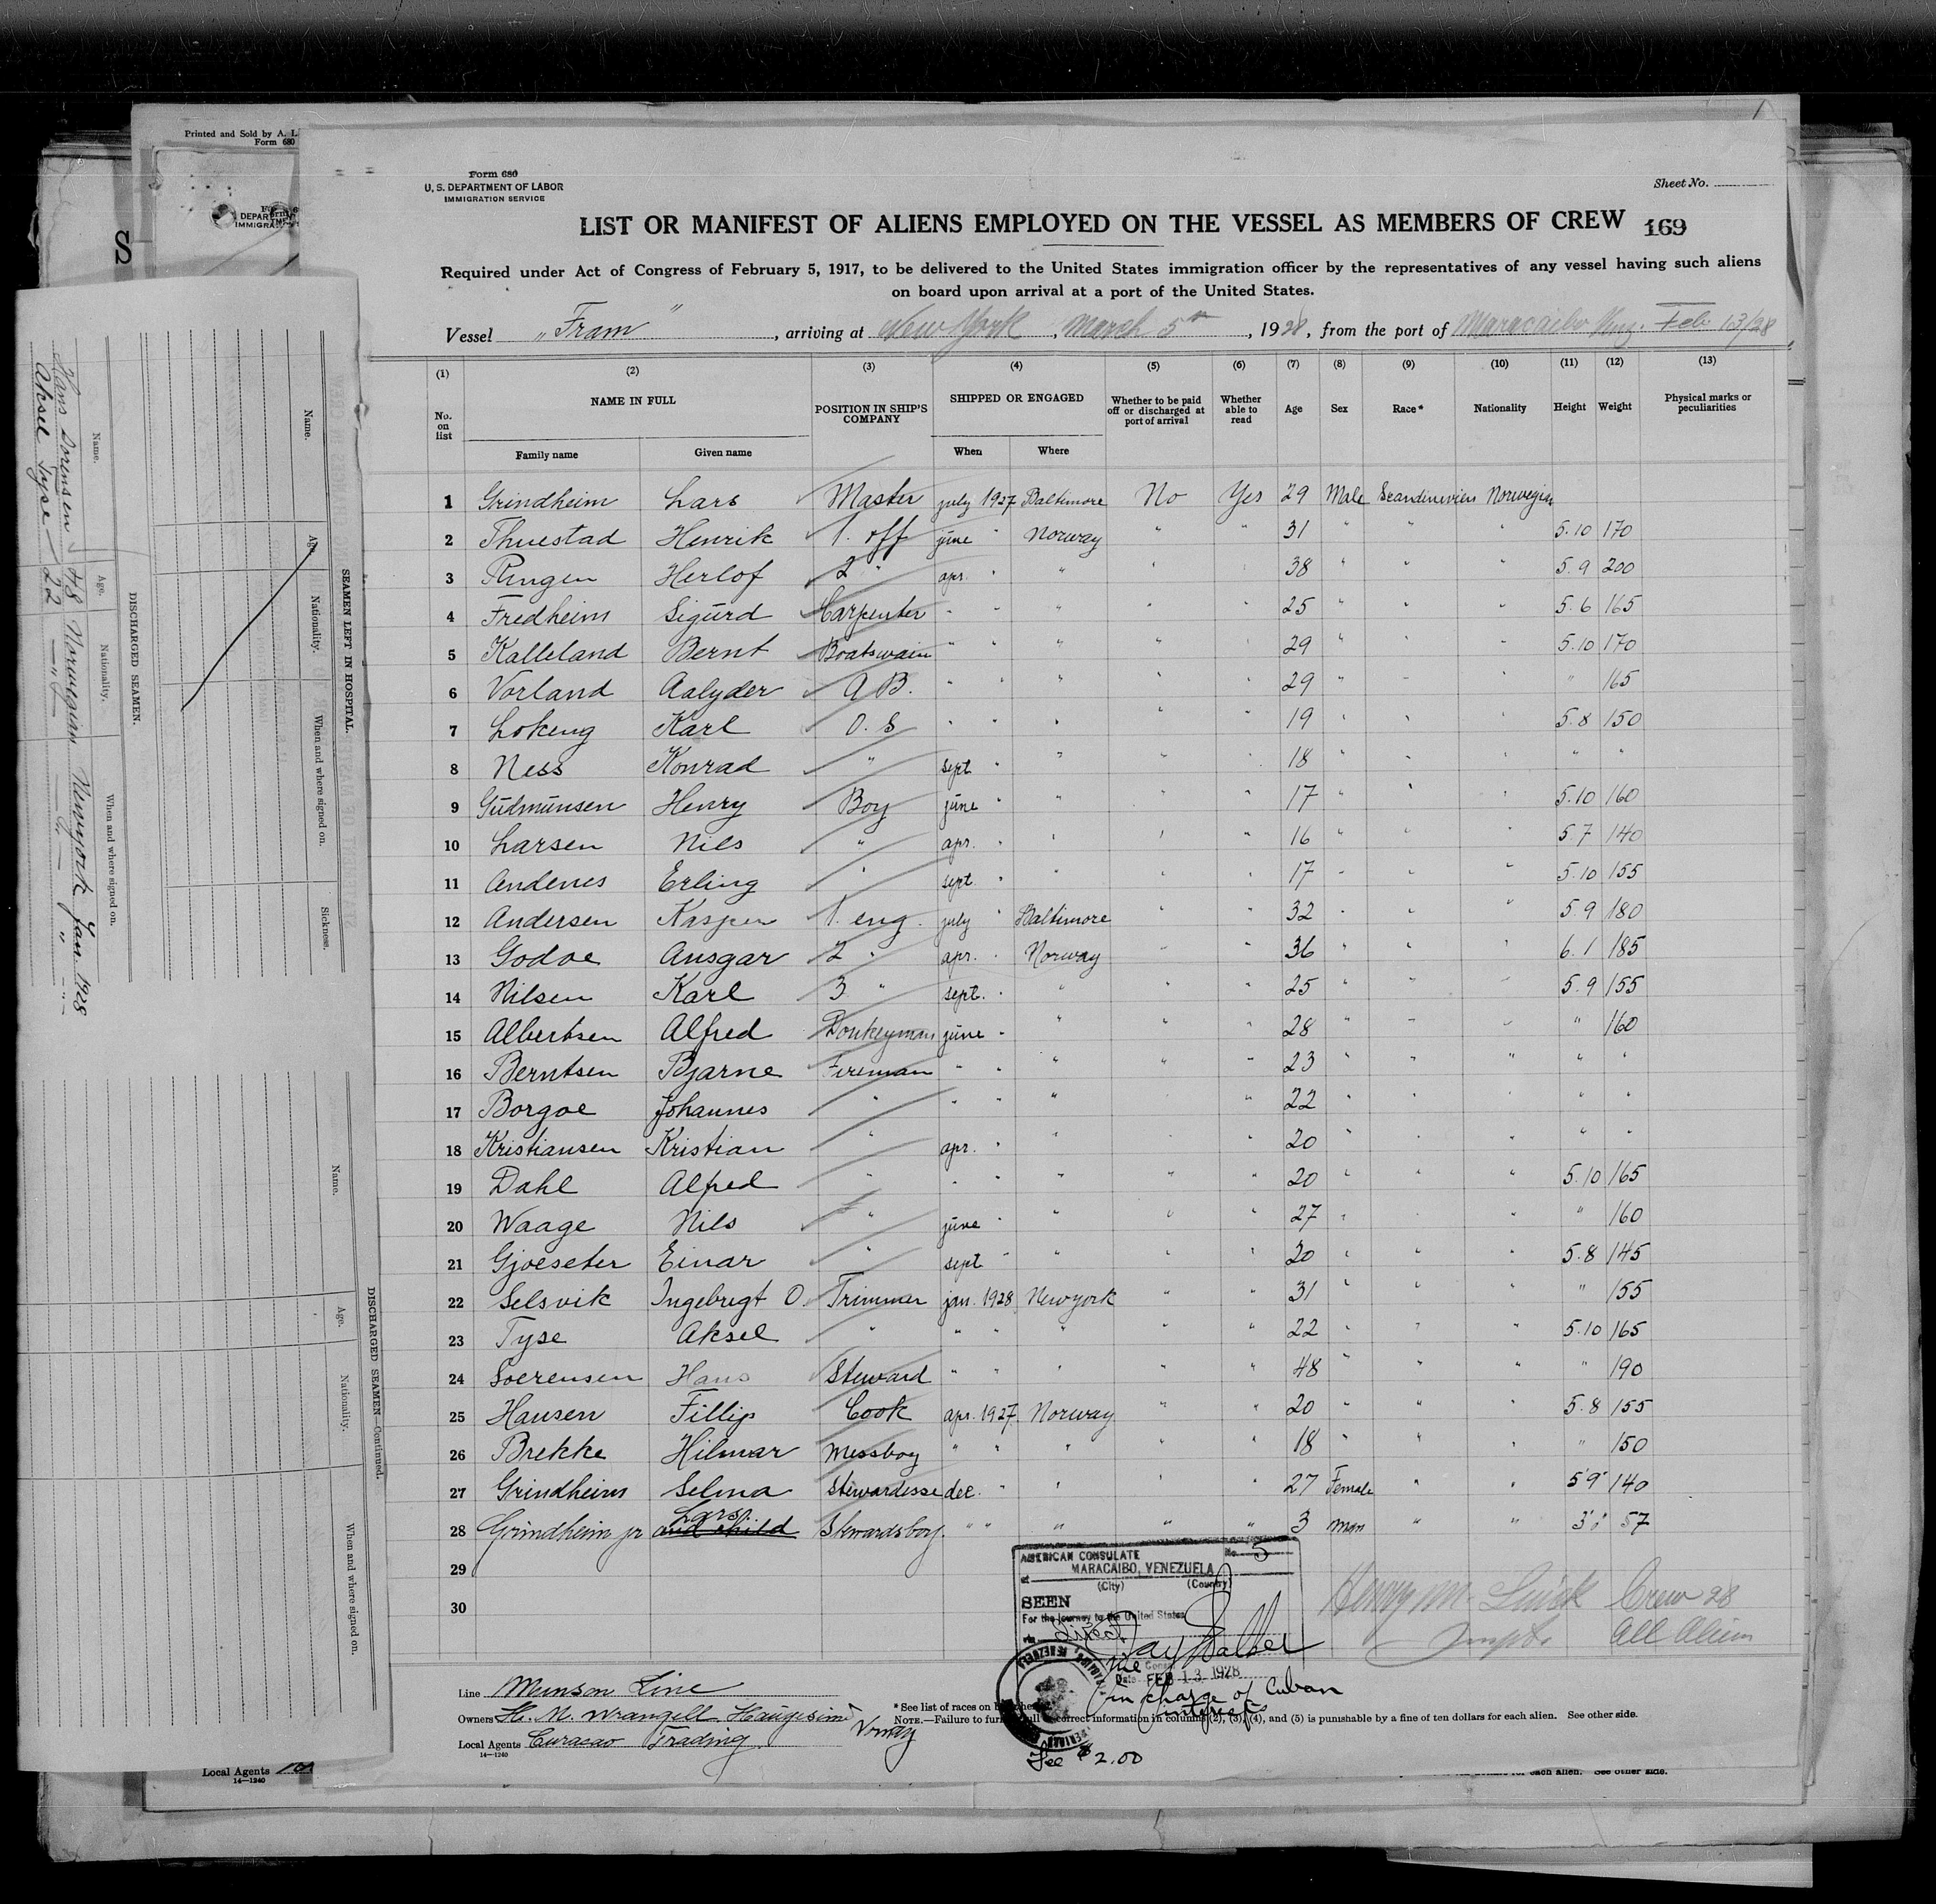 Printed and Sold by A. I.
Form 680
Form 680
U. S. DEPARTMENT OF LABOR
IMMIGRATION SERVICE
Sheet No.
LIST OR MANIFEST OF ALIENS EMPLOYED ON THE VESSEL AS MEMBERS OF CREW 169
Required under Act of Congress of February 5, 1917, to be delivered to the United States immigration officer by the representatives of any vessel having such aliens
on board upon arrival at a port of the United States.
Vessel „Fram", arriving at New York, March 5th, 1928, from the port of Maracaibo Feb 13/28
(1) (2) (3) (4) (5) (6) (7) (8) (9) (10) (11) (12) (13)
No. on list NAME IN FULL POSITION IN SHIP'S COMPANY SHIPPED OR ENGAGED Whether to be paid off or discharged at port of arrival Whether able to read Age Sex Race* Nationality Height Weight Physical marks or peculiarities
Family name Given name When Where
1 Grindheim Lars Master july 1927 Baltimore No Yes 29 Male Scandinavien Norwegian
2 Thuestad Henrik 1. off june " Norway " " 31 " " " 5.10 170
3 Ringen Herlof 2 " apr. " " " " 38 " " " 5.9 200
4 Fredheim Sigurd Carpenter " " " " " 25 " " " 5.6 165
5 Kalleland Bernt Boatswain " " " " " 29 " " " 5.10 170
6 Vorland Aalyder A B. " " " " " 29 " " " " 165
7 Lokeng Karl O. S " " " " " 19 " " " 5.8 150
8 Ness Konrad " sept " " " " 18 " " " " "
9 Gudmunsen Henry Boy june " " " " 17 " " " 5.10 160
10 Larsen Nils " apr. " " " " 16 " " " 5.7 140
11 Andenes Erling " sept. " " " " 17 " " " 5.10 155
12 Andersen Kasper 1. eng. july " Baltimore " " 32 " " " 5.9 180
13 Godoe Ansgar 2 " apr. " Norway " " 36 " " " 6.1 185
14 Nilsen Karl 3 " sept. " " " " 25 " " " 5.9 155
15 Albertsen Alfred Donkeyman june " " " " 28 " " " " 160
16 Berntsen Bjarne Fireman " " " " " 23 " " " " "
17 Borgoe Johannes " " " " " " 22 " " " " "
18 Kristiansen Kristian " apr. " " " " 20 " " " " "
19 Dahl Alfred " " " " " " 20 " " " 5.10 165
20 Waage Nils " june " " " " 27 " " " " 160
21 Gjoeseter Einar " sept " " " " 20 " " " 5.8 145
22 Selsvik Ingebregt O. Trimmer jan. 1928 New york " " 31 " " " " 155
23 Tyse Aksel " " " " " " 22 " " " 5.10 165
24 Soerensen Hans Steward " " " " " 48 " " " " 190
25 Hansen Fillip Cook apr. 1927 Norway " " 20 " " " 5.8 155
26 Brekke Hilmar Messboy " " " " " 18 " " " " 150
27 Grindheim Selma Stewardesse dec. " " " " 27 Female " " 5'9" 140
28 Grindheim jr Lars. and child Stewardsboy. " " " " " 3 man " " 57
29
30
AMERICAN CONSULATE No. 5
at MARACAIBO, VENEZUELA
(City) (Country)
SEEN
For the journey to the United States
via Direct
Vice Consul
Date FEB 13 1928
in charge of Cuban
interests
Fee $2.00
Crew 28
All Alien
Line Munson Line
Owners H. M. Wrangell Haugesund Norway
Local Agents Curacao Trading
14—1240
* See list of races on
NOTE.—Failure to furnish full or correct information in columns (2), (3), (4), and (5) is punishable by a fine of ten dollars for each alien. See other side.
Local Agents
14—1240
for each alien. See other side.
SEAMEN LEFT IN HOSPITAL.
Name. Age. Nationality. When and where signed on. Sickness.
DISCHARGED SEAMEN.
Name. Age. Nationality. When and where signed on.
Hans Sorensen 48 Norwegian Newyork Jan. 1928
Aksel Tyse 22 —"— —"— " —"—
DISCHARGED SEAMEN—Continued.
Name. Age. Nationality. When and where signed on.